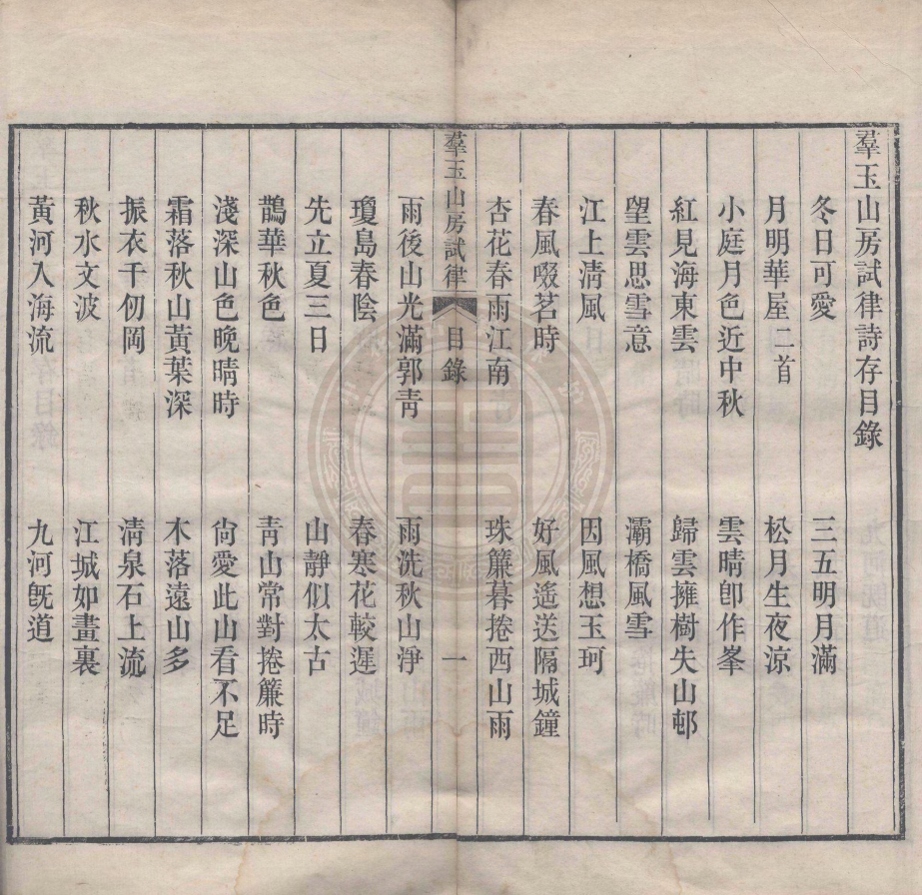 羣玉山房試律詩存目錄
冬日可愛 三五明月滿
月明華屋二首 松月生夜涼
小庭月色近中秋 雲晴卽作峯
紅見海東雲 歸雲擁樹失山邨
望雲思雪意 灞橋風雪
江上淸風 因風想玉珂
春風啜茗時 好風遙送隔城鐘
杏花春雨江南 珠簾暮捲西山雨
羣玉山房試律 目錄 一
雨後山光滿郭靑 雨洗秋山淨
瓊島春陰 春寒花較遲
先立夏三日 山靜似太古
鵲華秋色 靑山常對捲簾時
淺深山色晚晴時 尙愛此山看不足
霜落秋山黃葉深 木落遠山多
振衣千仞岡 淸泉石上流
秋水文波 江城如畫裏
黃河入海流 九河旣道